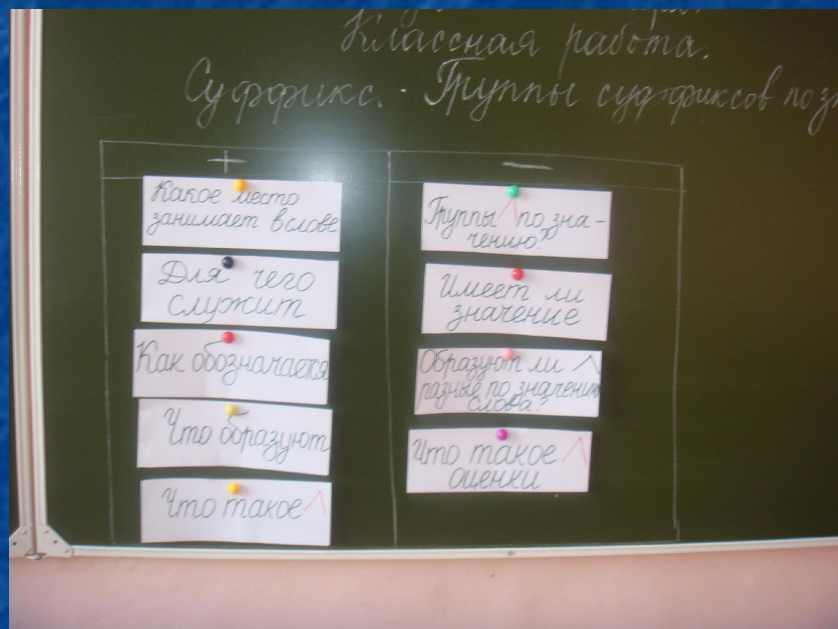 Классная работа.
Суффикс. Группы суффиксов по
+
—
Какое место
занимает в слове
Для чего
служит
Как обозначается
Что образуют
Что такое ^
Группы ^ по зна-
чению?
Имеет ли
значение
Образуют ли ^
разные по значению
слова?
Что такое ^
оценки